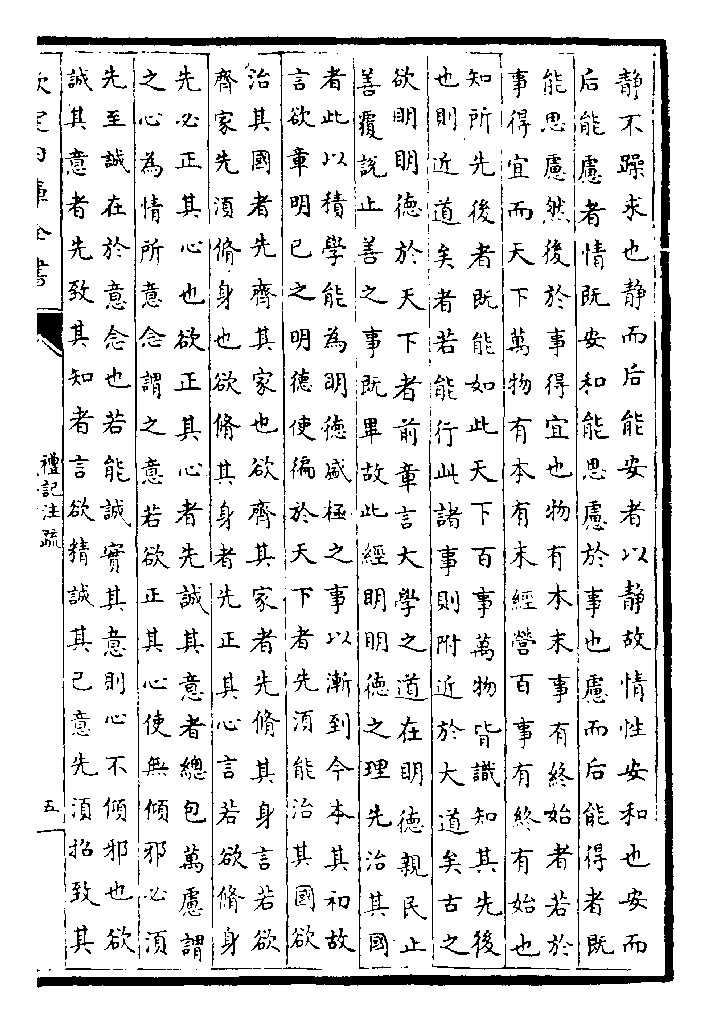 静不躁求也静而后能安者以静故情性安和也安而
后能慮者情既安和能思慮於事也慮而后能得者既
能思慮然後於事得宜也物有本末事有終始者若於
事得宜而天下萬物有本有末經營百事有終有始也
知所先後者既能如此天下百事萬物皆識知其先後
也則近道矣者若能行此諸事則附近於大道矣古之
欲明明德於天下者前章言大學之道在明德親民止
善覆說止善之事既畢故此經明明徳之理先治其國
者此以積學能為明德盛極之事以漸到今本其初故
言欲章明己之明德使徧於天下者先湏能治其國欲
治其國者先齊其家也欲齊其家者先脩其身言若欲
齊家先湏脩身也欲脩其身者先正其心言若欲脩身
先必正其心也欲正其心者先誠其意者總包萬慮謂
之心為情所意念謂之意若欲正其心使無傾邪必湏
先至誠在於意念也若能誠實其意則心不傾邪也欲
誠其意者先致其知者言欲精誠其己意先湏招致其
欽定四庫全書
禮記注疏
五